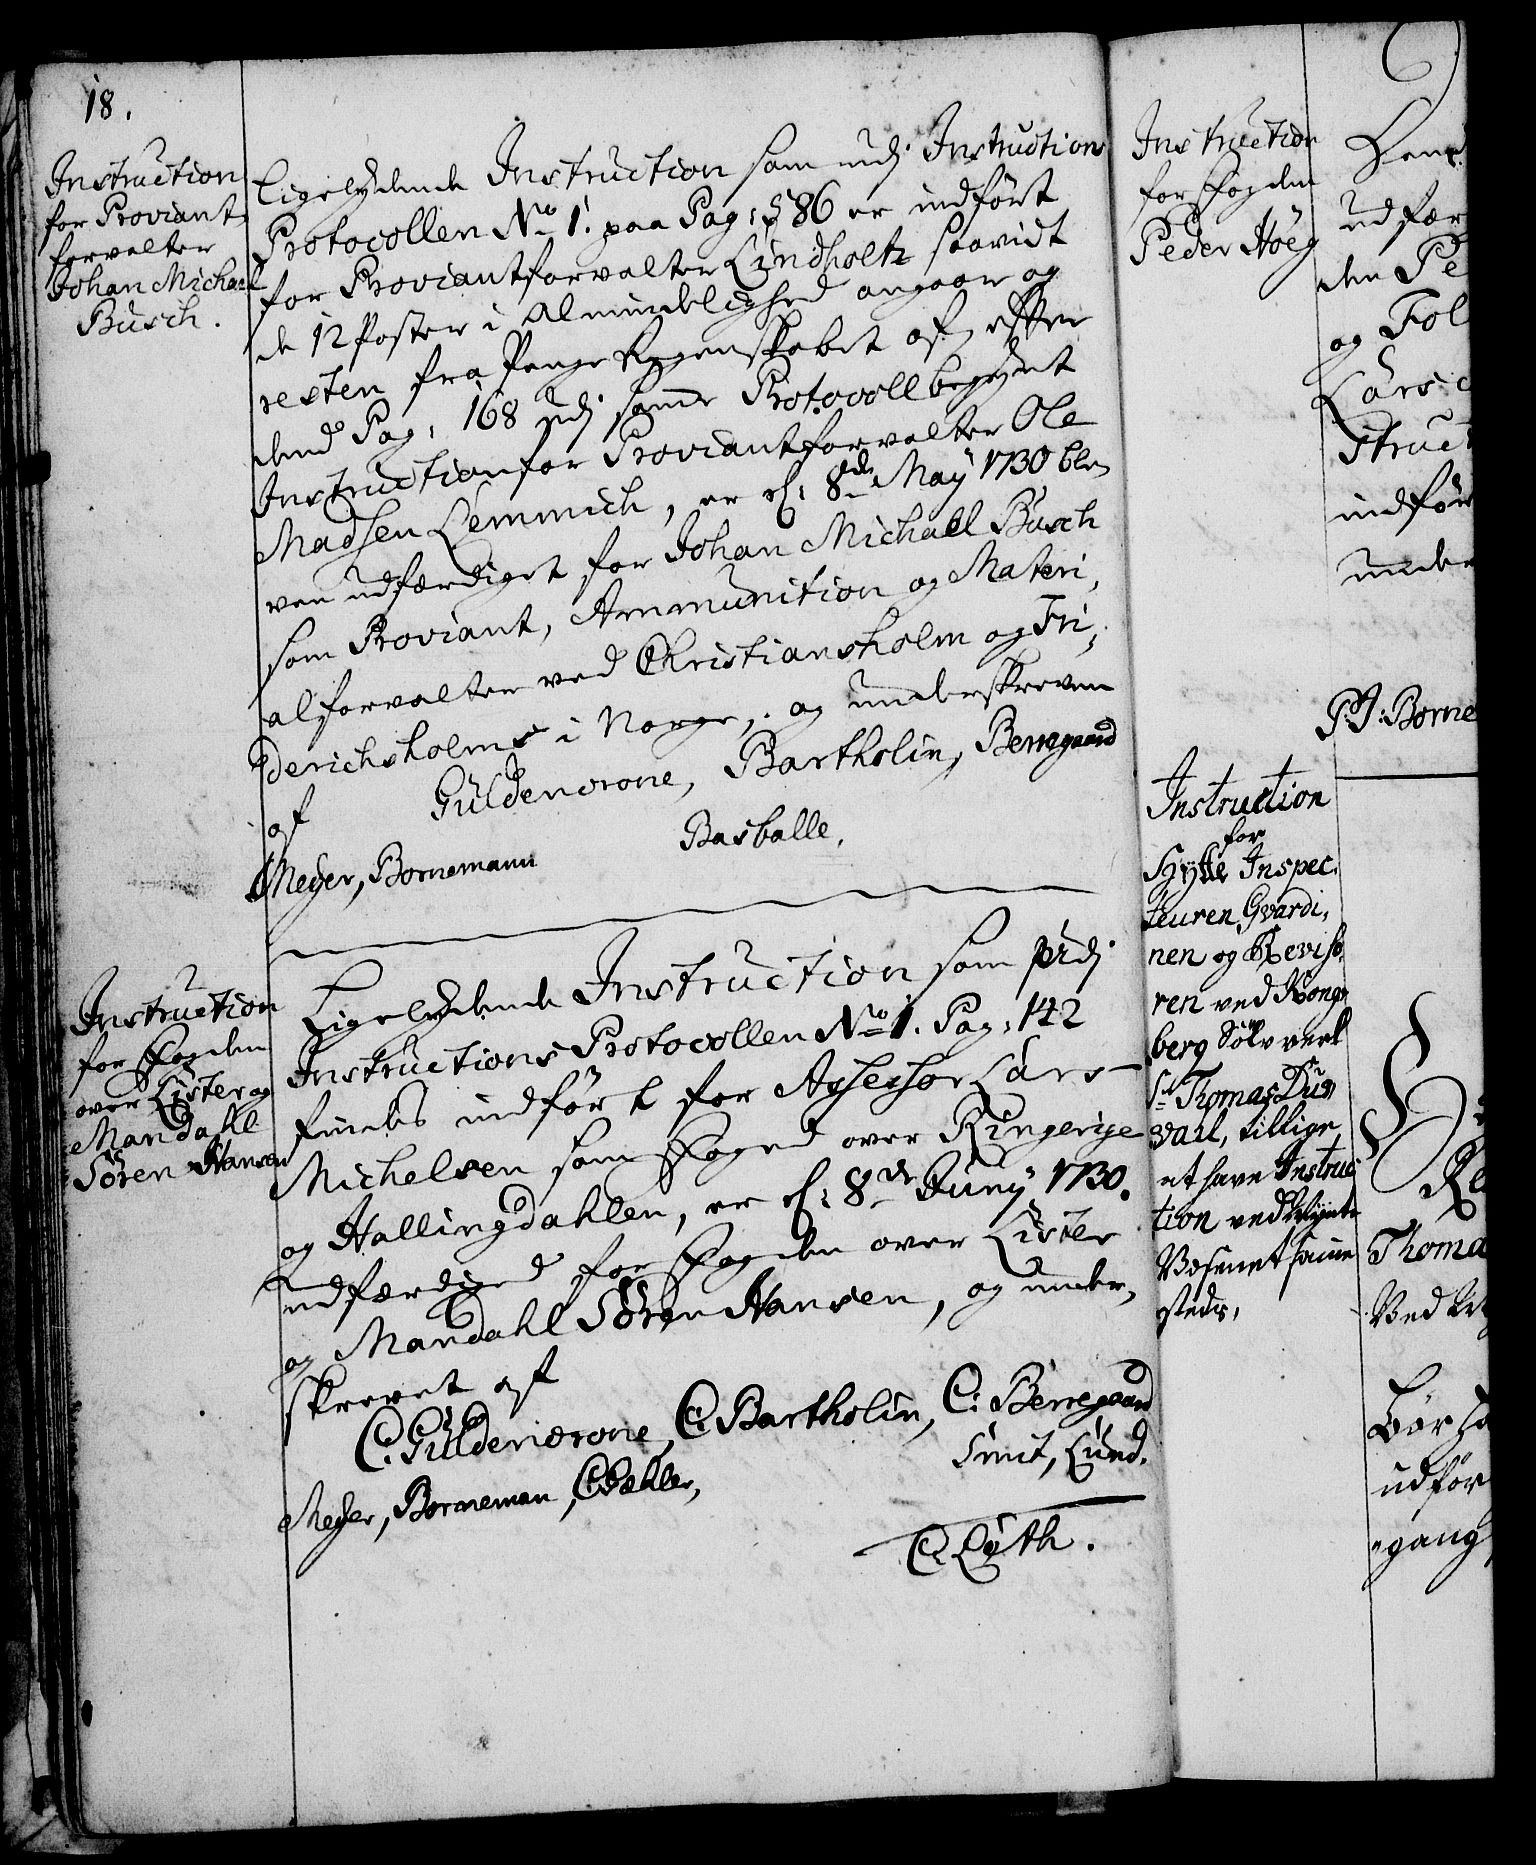 18.
Instruction
for Proviant-
forvalter
Johan Michael
Busch.
Ligelydende Instruction som udj Instructions
Protocollen No 1. paa Pag: 586 er indført
for Proviantforvalter Lindholtz saavidt
de 12 Poster i Almindelighed angaar og
resten fra Penge Regenskabet af, efter
dend Pag: 168 udj samme Protocoll begyndt
Instruction for Proviantforvalter Ole
Madsen Lemmich, er d: 8de May 1730 ble-
ven udfærdiget for Johan Michaell Busch
som Proviant, Ammunition og Materi-
alforvalter ved Christiansholm og Fri-
derichsholms i Norge, og underskreven
af Güldencrone, Bartholin, Benzegaard
Meyer, Bornemann Basballe.
Instruction
for Fogden
over Lister og
Mandahl
Søren Hansen
Ligelydende Instruction som udj
Instructions Protocollen No 1. Pag: 142
findes indført for Assessor Lars
Michelsen som Foged over Ringerige
og Hallingdahlen, er d: 8de Juny 1730.
udfærdiged for Fogden over Lister
og Mandahl Søren Hansen, og under-
skrevet af
C. Güldencrone, C. Bartholin, C: Benzegaard
Meyer, Borneman, Smit, Lund.
C. Løth.
Instruction
for Fogden
Peder Höeg
Instruction
for
Hytte Inspec-
teuren, Gvardi-
nen og Reviso-
ren ved Kongs-
berg Sölvverk
Sr Thomas
at have Instruc-
tion ved Mynte
Væsenet samme-
steds.
Dend
udfær
den Pe
og Fol
Lars
struct
indför
under
P. J: Borne
Re
Thoma
Ved
Bør
udför
gang